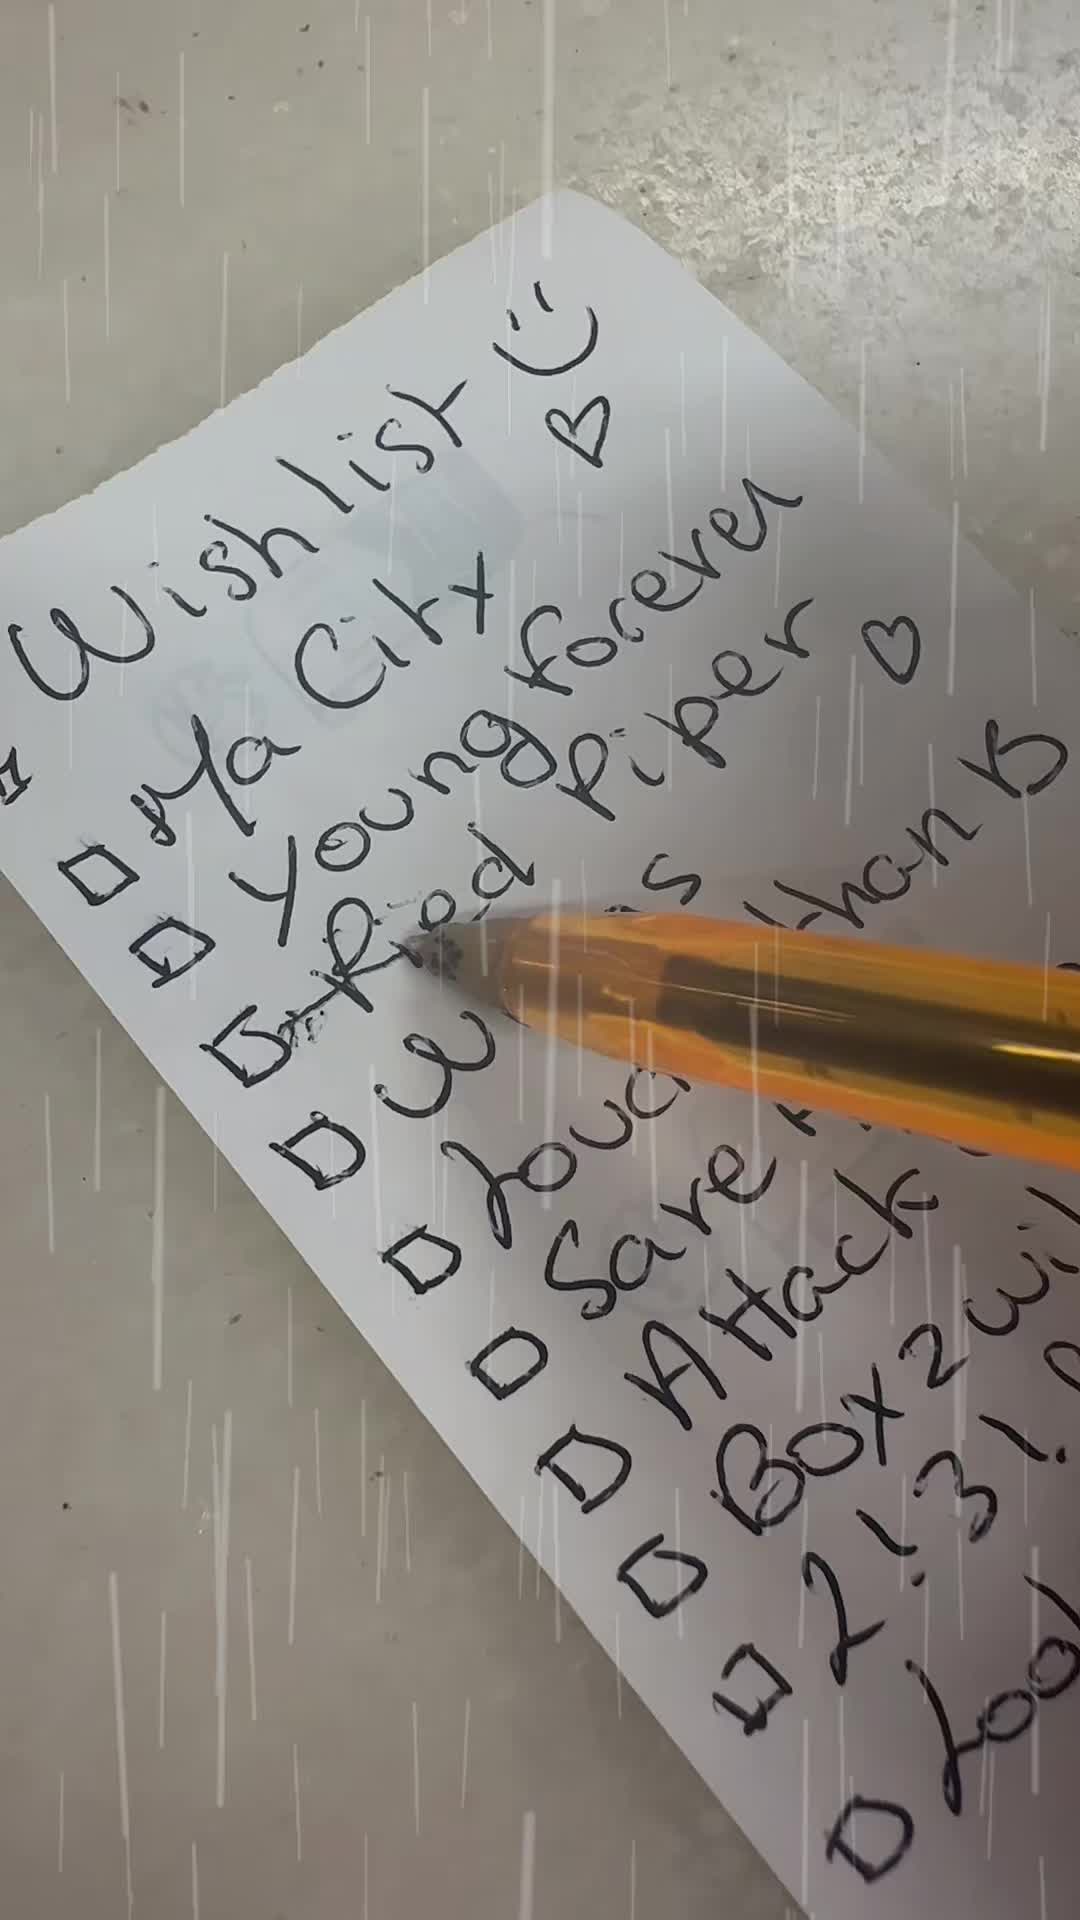 Wishlist
Ma City
Young forever
Pied Piper
Louder than B
Save
Attack
Box 2 wil
2!3!